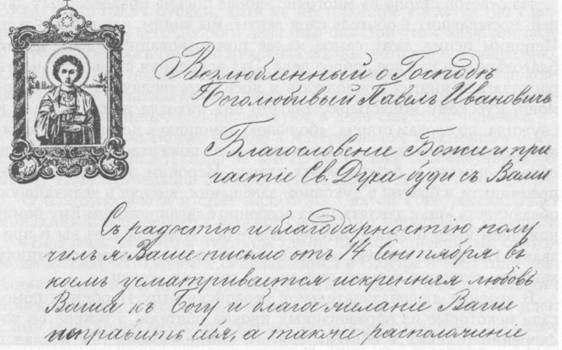 Возлюбленный о Господѣ
Боголюбивый Павелъ Ивановичъ
Благословеніе Божіе и при
частіе Св. Духа буди съ Вами
Съ радостію и благодарностію полу
чилъ я Ваше письмо отъ 14 Сентября въ
коемъ усматривается искренняя любовь
Ваша къ Богу и благожеланіе Ваше
исправить себя, а также расположеніе